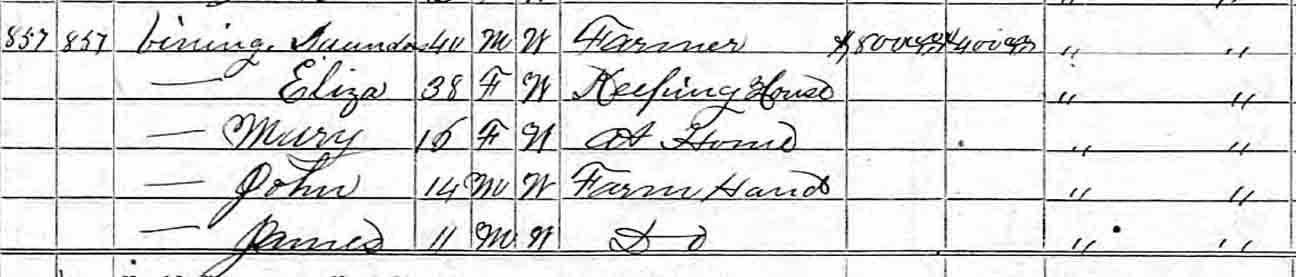 857 857 Vining, Saunders 40 M W Farmer $8000 $4000 " "
— Eliza 38 F W Keeping House " "
— Mary 16 F W At Home " "
— John 14 M W Farm Hand " "
— James 11 M W Do " "